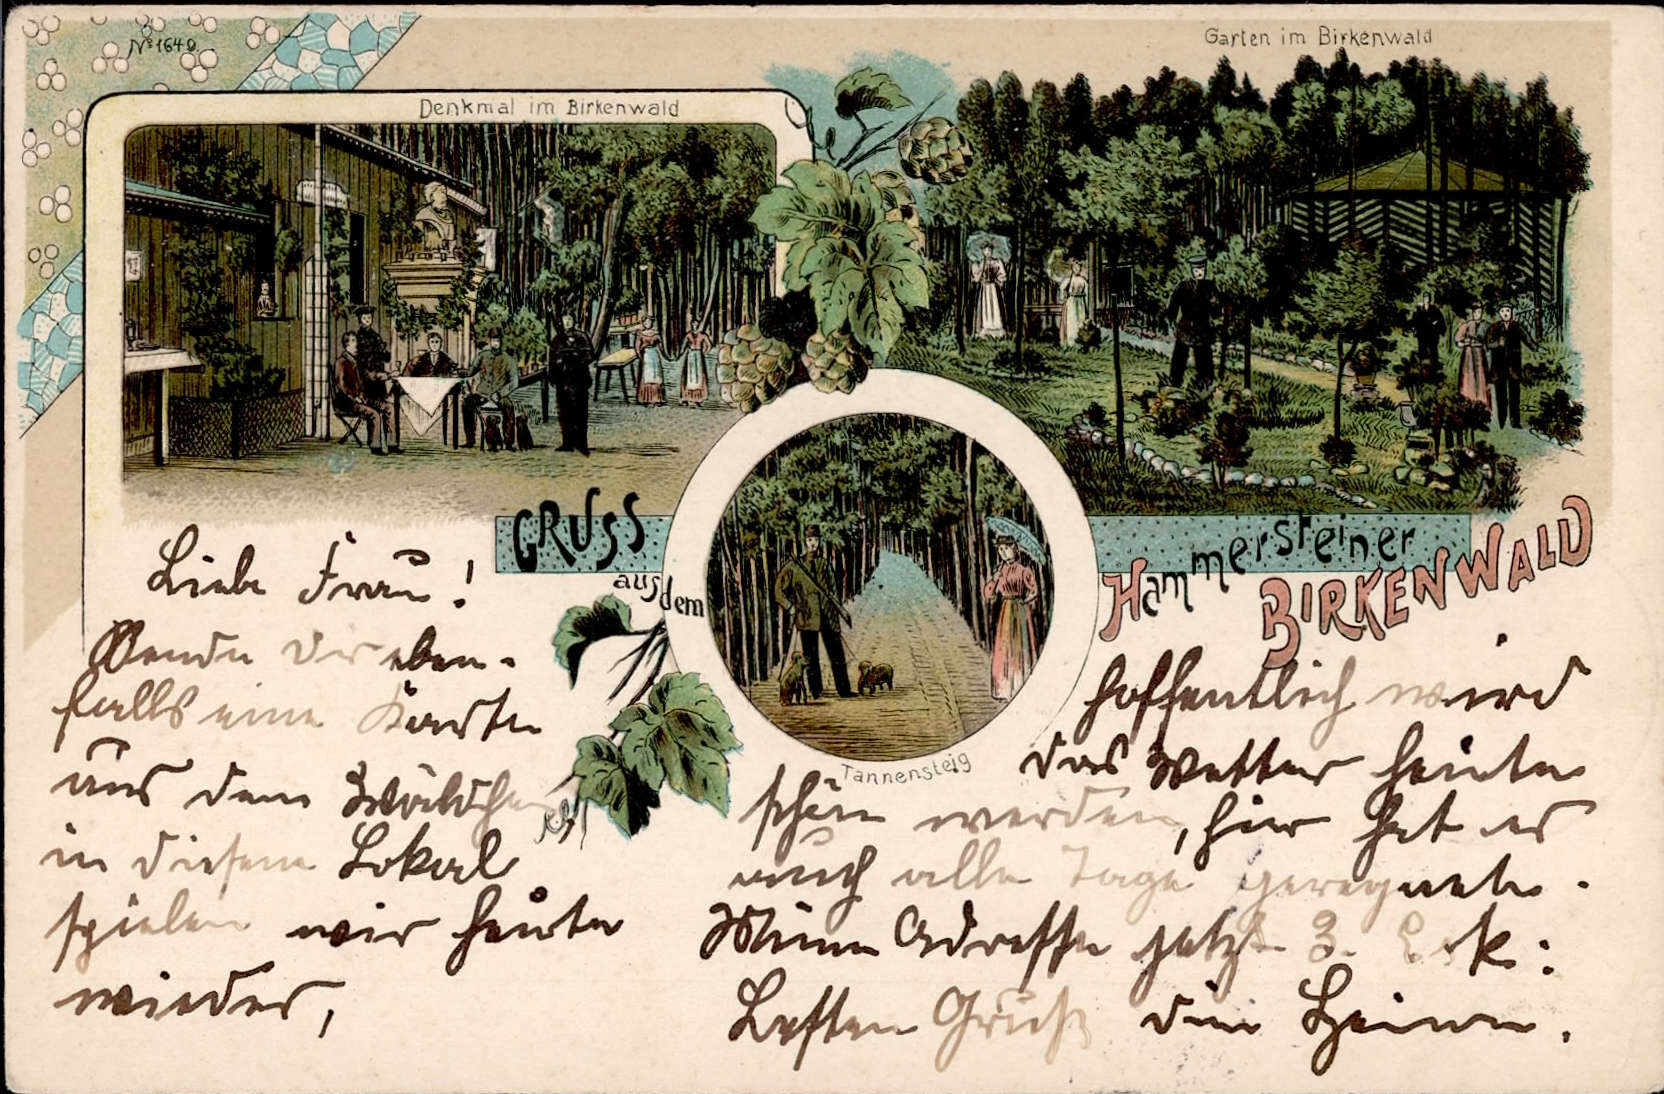 № 1649
Denkmal im Birkenwald
Garten im Birkenwald
GRUSS
aus dem
Hammersteiner
BIRKENWALD
Tannensteig
Liebe Frau!
Sende dir eben-
falls eine Karte
aus dem Wäldchen
in diesem Lokal
spielen wir heute
wieder,
hoffentlich wird
das Wetter heute
schön werden, hier hat es
auch alle Tage geregnet.
Meine Adresse jetzt 3.
Besten Gruß dein